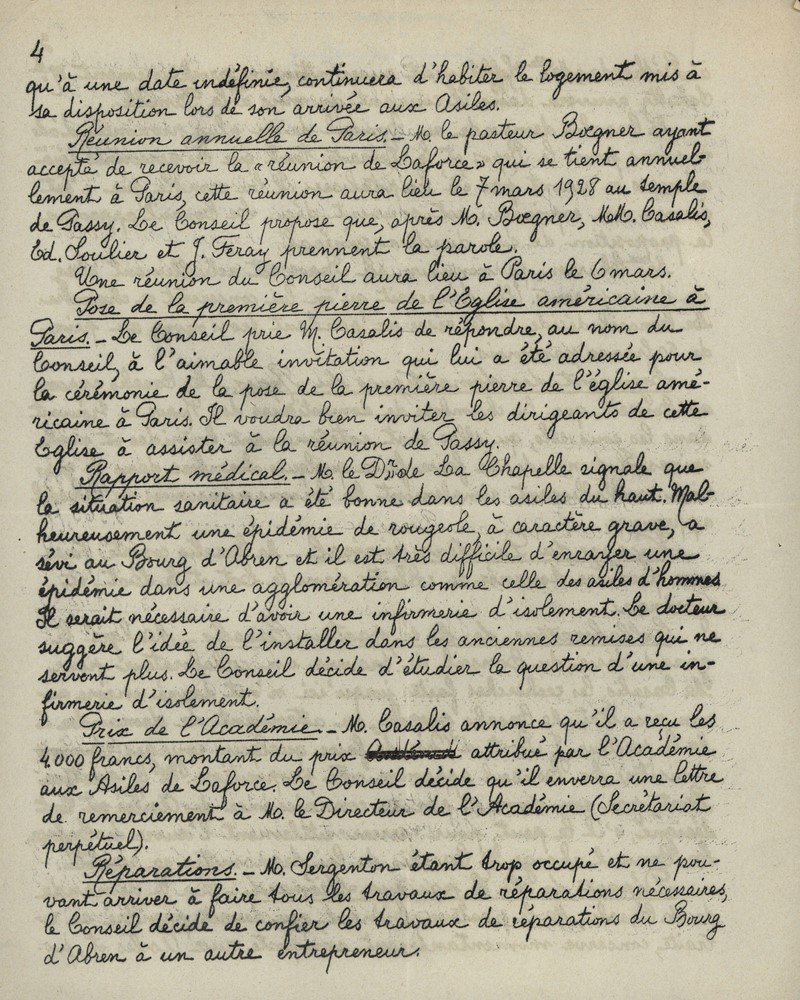 4
qu'à une date indéfinie, continuera d'habiter le logement mis à
sa disposition lors de son arrivée aux Asiles.
Réunion annuelle de Paris. – M. le pasteur Bœgner ayant
accepté de recevoir la « réunion de Laforce » qui se tient annuel-
lement à Paris, cette réunion aura lieu le 7 mars 1928 au temple
de Passy. Le Conseil propose que, après M. Bœgner, MM. Casalis,
Ed. Soulier et J. Feray prennent la parole.
Une réunion du Conseil aura lieu à Paris le 6 mars.
Pose de la première pierre de l'Eglise américaine à
Paris. – Le Conseil prie M. Casalis de répondre, au nom du
Conseil, à l'aimable invitation qui lui a été adressée pour
la cérémonie de la pose de la première pierre de l'église amé-
ricaine à Paris. Il voudra bien inviter les dirigeants de cette
Eglise à assister à la réunion de Passy.
Rapport médical. – M. le Dr de La Chapelle signale que
la situation sanitaire a été bonne dans les asiles du haut. Mal-
heureusement une épidémie de rougeole, à caractère grave, a
sévi au Bourg d'Abren et il est très difficile d'enrayer une
épidémie dans une agglomération comme celle des asiles d'hommes
Il serait nécessaire d'avoir une infirmerie d'isolement. Le docteur
suggère l'idée de l'installer dans les anciennes remises qui ne
servent plus. Le Conseil décide d'étudier la question d'une in-
firmerie d'isolement.
Prix de l'Académie. – M. Casalis annonce qu'il a reçu les
4000 francs, montant du prix attribué par l'Académie
aux Asiles de Laforce. Le Conseil décide qu'il enverra une lettre
de remerciement à M. le Directeur de l'Académie (Secrétariat
perpétuel).
Réparations. – M. Sergenton étant trop occupé et ne pou-
vant arriver à faire tous les travaux de réparations nécessaires,
le Conseil décide de confier les travaux de réparations du Bourg
d'Abren à un autre entrepreneur.